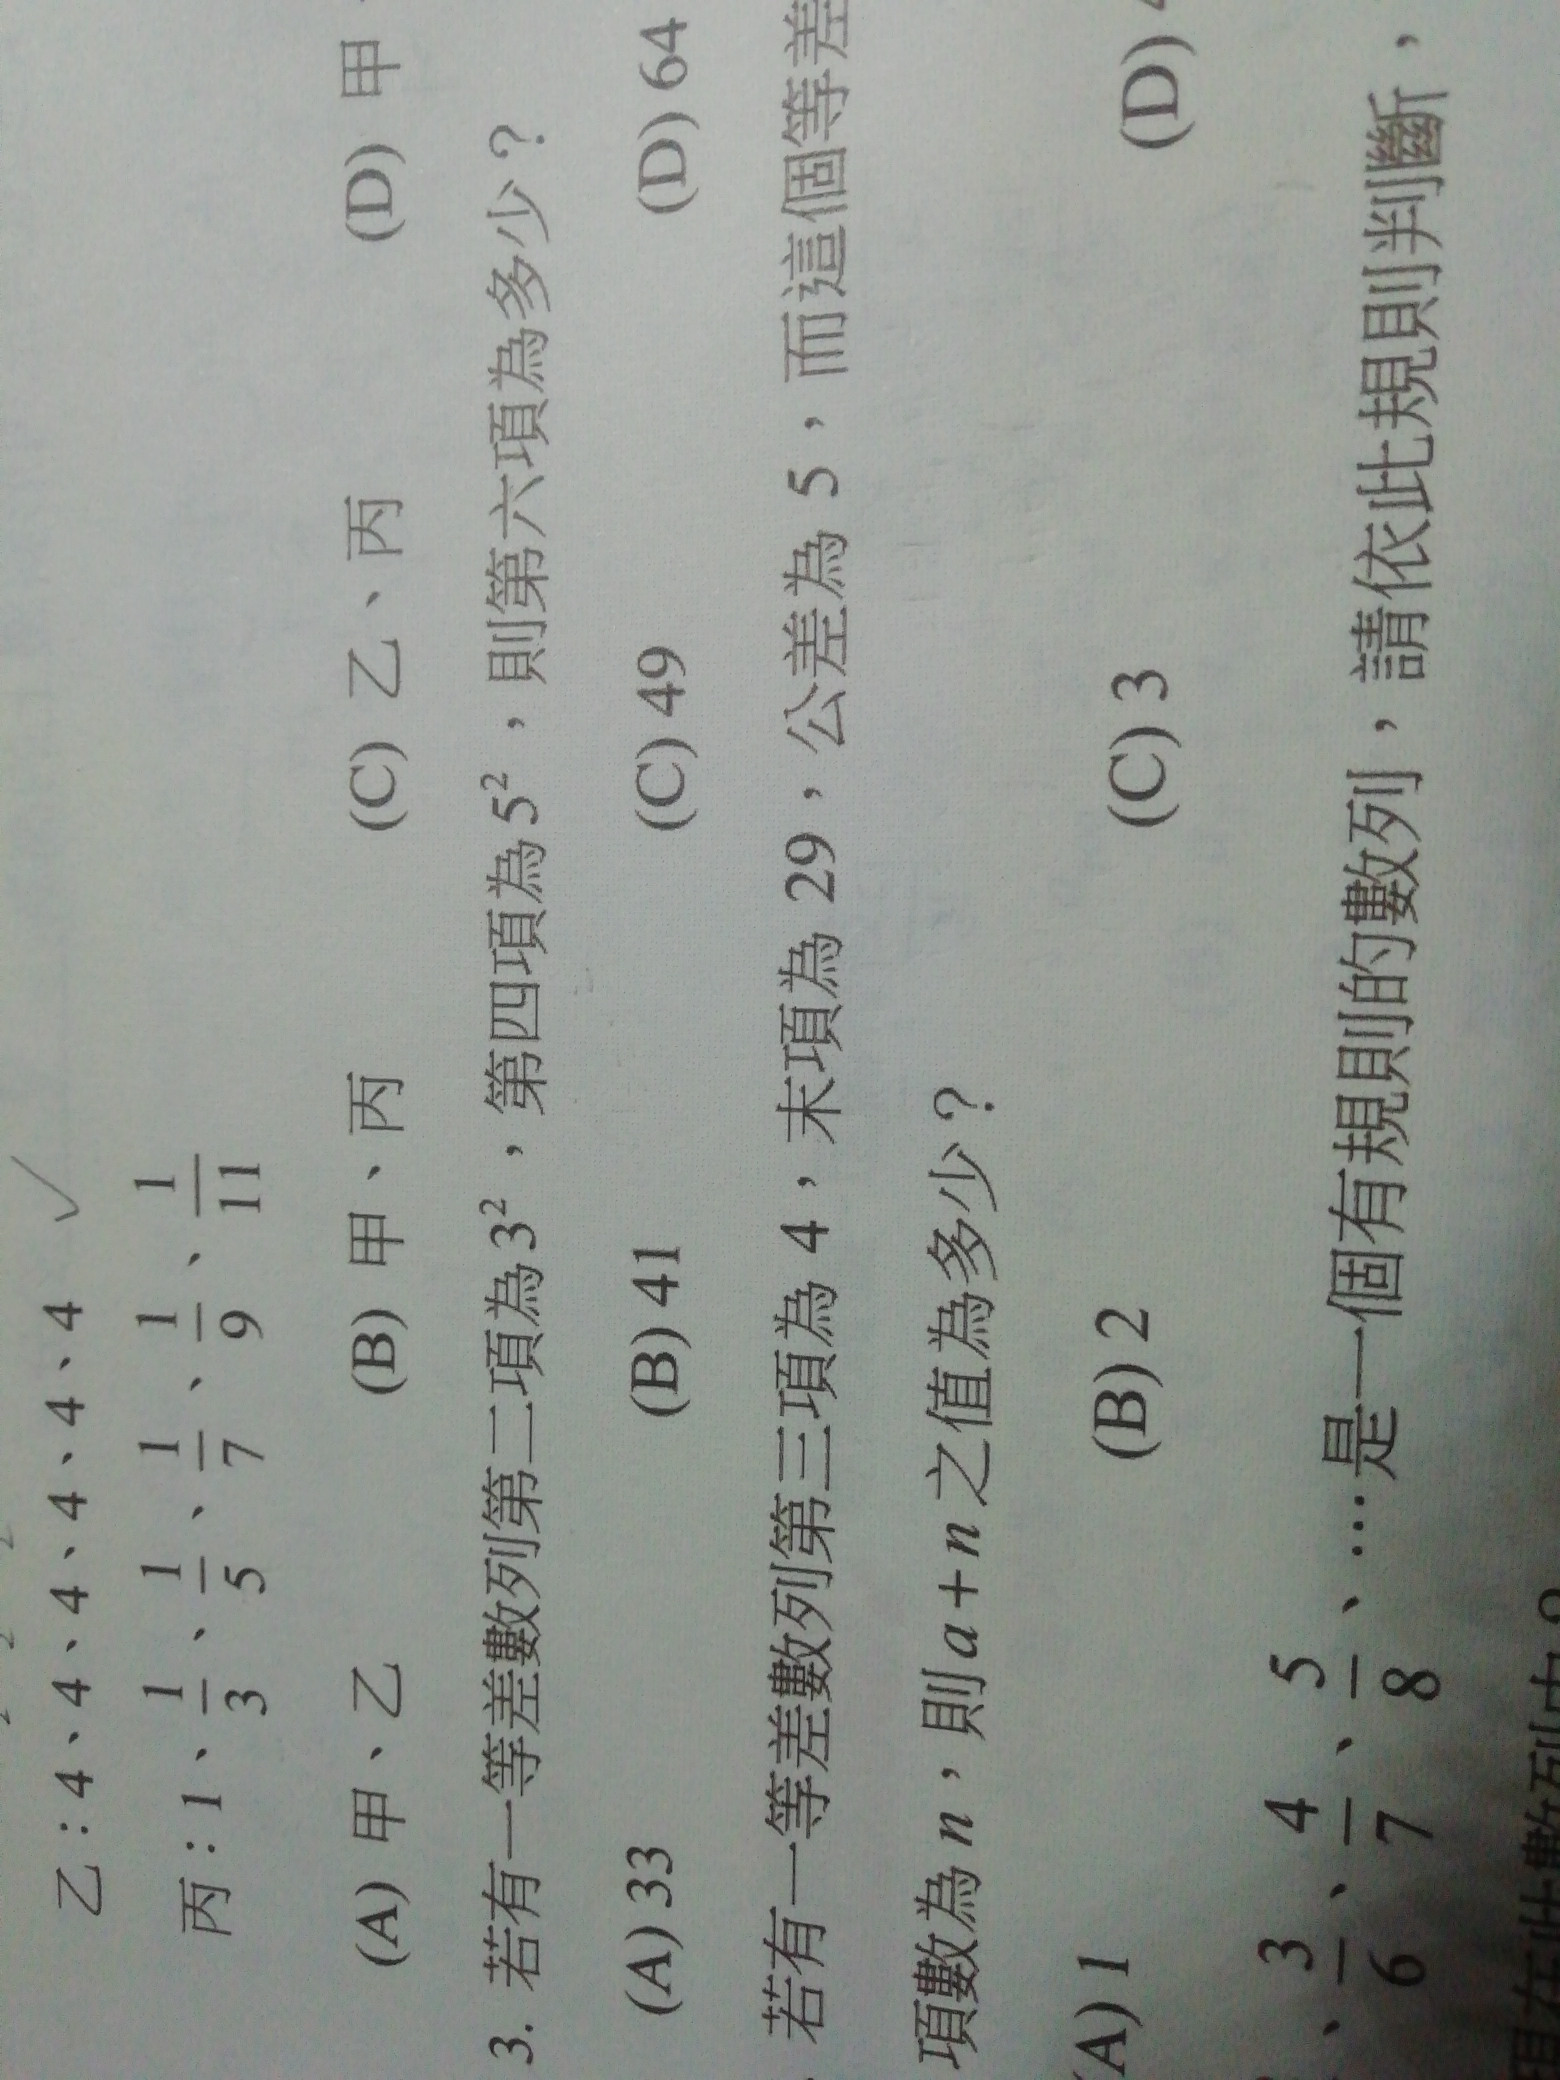 乙：4、4、4、4、4、4、4
丙：1、1/3、1/5、1/7、1/9、1/11
(A) 甲、乙 (B) 甲、丙 (C) 乙、丙 (D) 甲
3. 若有一等差數列第二項為3²，第四項為5²，則第六項為多少？
(A) 33 (B) 41 (C) 49 (D) 64
若有一等差數列第三項為 4，末項為 29，公差為 5，而這個等差
項數為 n，則 a+n 之值為多少？
(A) 1 (B) 2 (C) 3 (D)
、3/6、4/7、5/8、…是一個有規則的數列，請依此規則判斷，